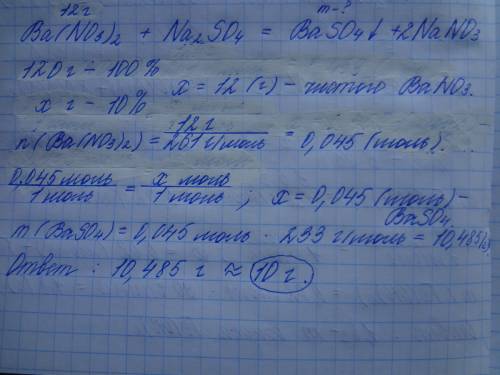 12 г m-?
Ba(NO3)2 + Na2SO4 = BaSO4↓ + 2NaNO3
120 г – 100 %
x г – 10 % x = 12 (г) – чистого BaNO3.
n(Ba(NO3)2) = 12 г / 261 г/моль = 0,045 (моль).
0,045 моль / 1 моль = x моль / 1 моль ; x = 0,045 (моль) – BaSO4
m (BaSO4) = 0,045 моль · 233 г/моль = 10,485 (г).
Ответ : 10,485 г ≈ 10 г.